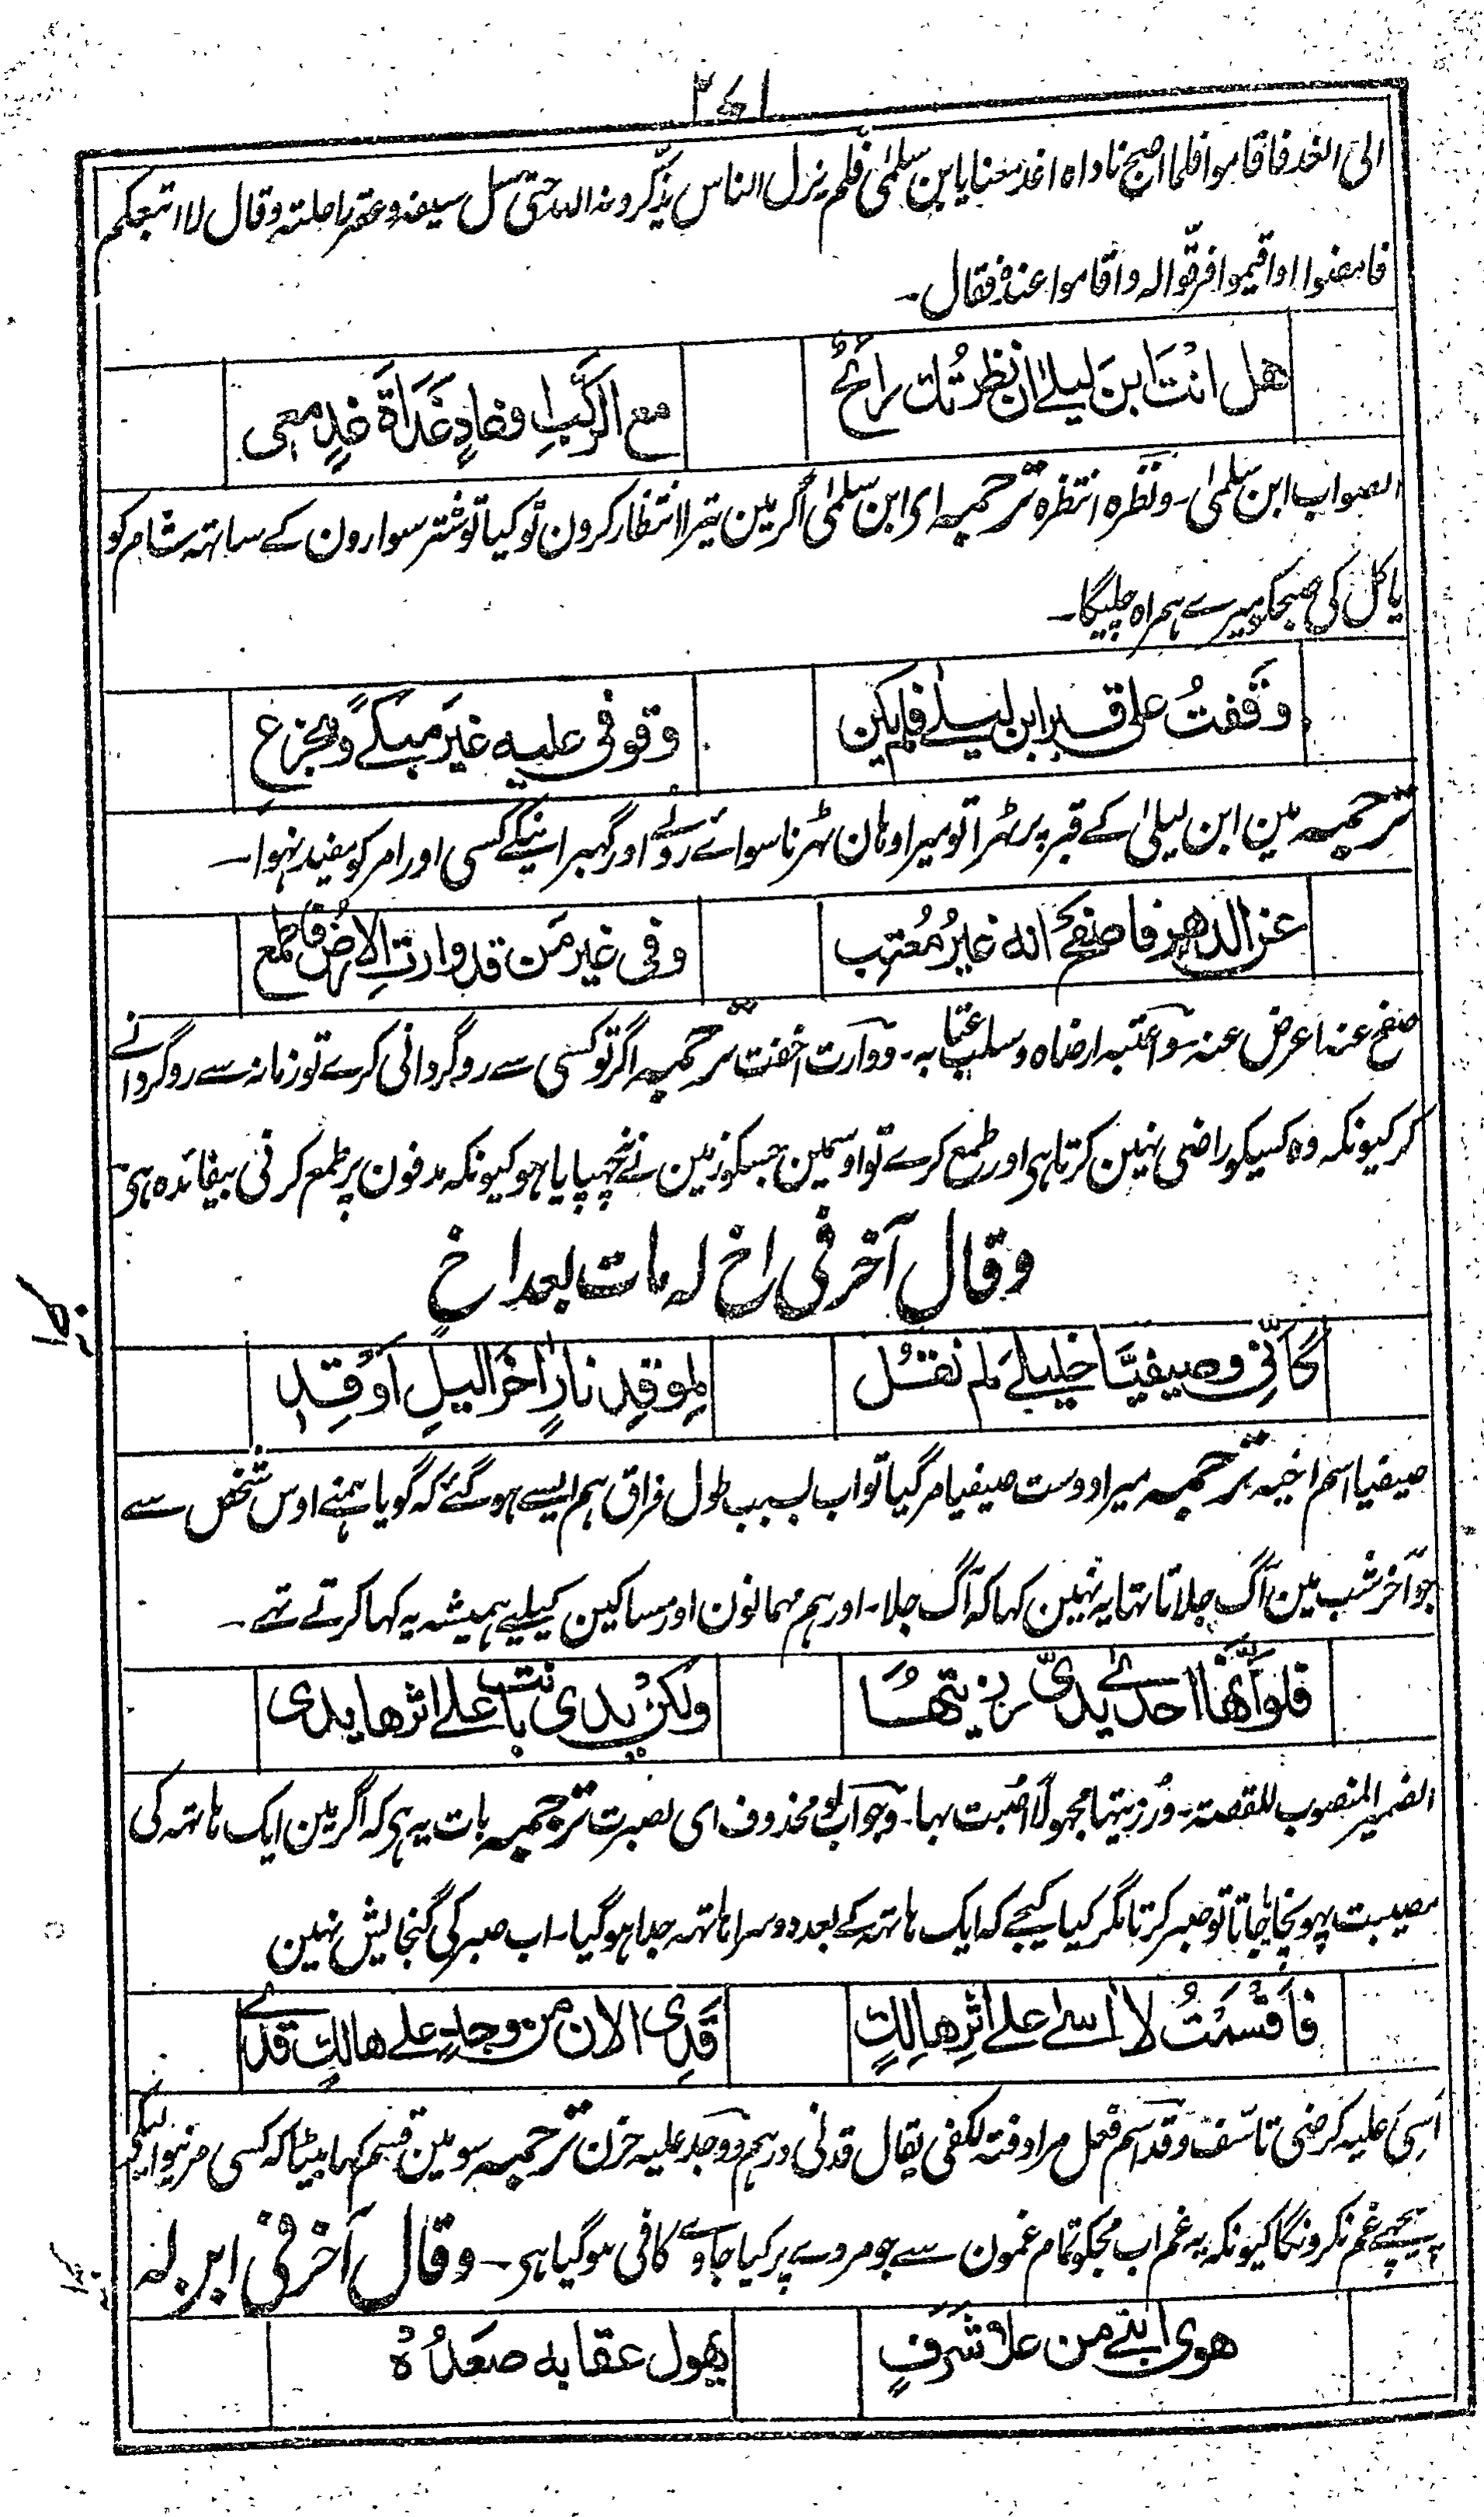 ۲۷۱
الی الغد فاقاموا فلما اصبح ناداه اغد معنا یا ابن سلمیٰ فلم یزل الناس یذکّرونه الله حتیٰ سل سیفه وعقر راحلته وقال لا اتبعکم
فامضوا او اقیموا فرقّوا له واقاموا عنده فقال۔
هل انتَ ابنَ لیلیٰ ان نظرتُك رائحٌ
مع الرکبِ او غادٍ غَدَاةَ غدٍ معی
الصواب ابن سلمیٰ۔ ونظره انتظره ترجمہ ای ابن سلمیٰ اگر مین تیرا انتظار کرون تو کیا تو شتر سوارون کے ساتھہ شام کو
یا کل کی صبحکو میرے ہمراہ چلیگا۔
وقَفتُ علی قبر ابن لیلیٰ فلم یکن
وقوفی علیه غیرَ مبکیً ومجزع
ترجمہ مین ابن لیلیٰ کے قبر پر ٹھرا تو میرا وہان ٹھرنا سوائے روئے اور گہبرانیکے کسی اور امر کو مفید نہوا۔
عن الدهر فاصفح انه غیرُ مُعتِب
وفی غیر مَن قد وارتِ الارضُ فاطمع
صفح عنہ اعرض عنہ۔ واعتبہ ارضاہ وسلب عتابہ۔ ووارت اخفت ترجمہ اگر تو کسی سے روگردانی کرے تو زمانہ سے روگردانے
کر کیونکہ وہ کسیکو راضی نہین کرتا ہی اور طمع کرے تو اوسمین جسکو زمین نے نچہپایا ہو کیونکہ مدفون پر طمع کرنی بیفائدہ ہی
وقال آخر فی اخ له مات بعد اخ
کانّی وصیفیّا خلیلیَ لم نقُل
لموقدِ نارٍ اٰخرَ الیلِ اَوقِدِ
صیفیا اسم اخیہ ترجمہ میرا دوست صیفیا مر گیا تو اب بسبب طول فراق ہم ایسے ہو گئے کہ گویا ہمنے اوس شخص سے
جو آخر شب مین آگ جلاتا تہا یہ نہین کہا کہ آگ جلا۔ اور ہم مہمانون اور مساکین کیلیے ہمیشہ یہ کہا کرتے تہے۔
فلو اَنّها احدیٰ یدیّ رزیتُها
ولکن یدی بانت علے اثرها یدی
الضمیر المنصوب للقصة۔ ورُزیتہا مجہولاً اُصبت بہا۔ وجواب لو محذوف ای لصبرت ترجمہ بات یہ ہی کہ اگر مین ایک ہاتہہ کی
مصیبت پہونچایا جاتا تو صبر کرتا مگر کیا کیجے کہ ایک ہاتہہ کے بعد دوسرا ہاتہہ جدا ہو گیا۔ اب صبر کی گنجایش نہین
فاَقسَمتُ لا اٰسیٰ علے اثرِ هالِكٍ
قَدِی الان من وجدٍ علے هالكٍ قدی
اسی علیہ کرضی تاسّف وقد اسم فعل مرادفتہ لکفی یقال قدنی درہم ووجد علیہ حزن ترجمہ سو مین قسم کہا بیٹہا کہ کسی مرنیوالیکے
پیچہے غم نکرونگا کیونکہ یہ غم اب مجکو تمام غمون سے جو مردے پر کیا جاوے کافی ہو گیا ہی۔ وقال آخر فی ابن له
هوی ابنی من علا شَرَفٍ
یهول عقابه صعَدُهْ